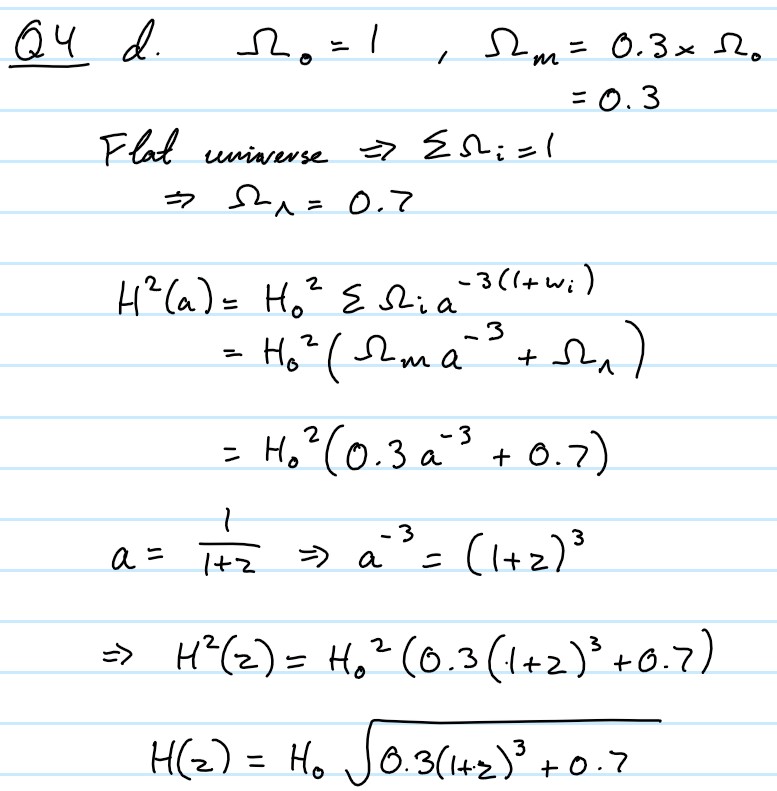 Q4 d. Ω₀ = 1 , Ωm = 0.3 × Ω₀
= 0.3
Flat universe ⇒ ΣΩᵢ = 1
⇒ Ω_Λ = 0.7
H²(a) = H₀² Σ Ωᵢ a^{-3(1+wᵢ)}
= H₀² (Ωm a⁻³ + Ω_Λ)
= H₀² (0.3 a⁻³ + 0.7)
a = 1/(1+z) ⇒ a⁻³ = (1+z)³
⇒ H²(z) = H₀² (0.3(1+z)³ + 0.7)
H(z) = H₀ √(0.3(1+z)³ + 0.7)